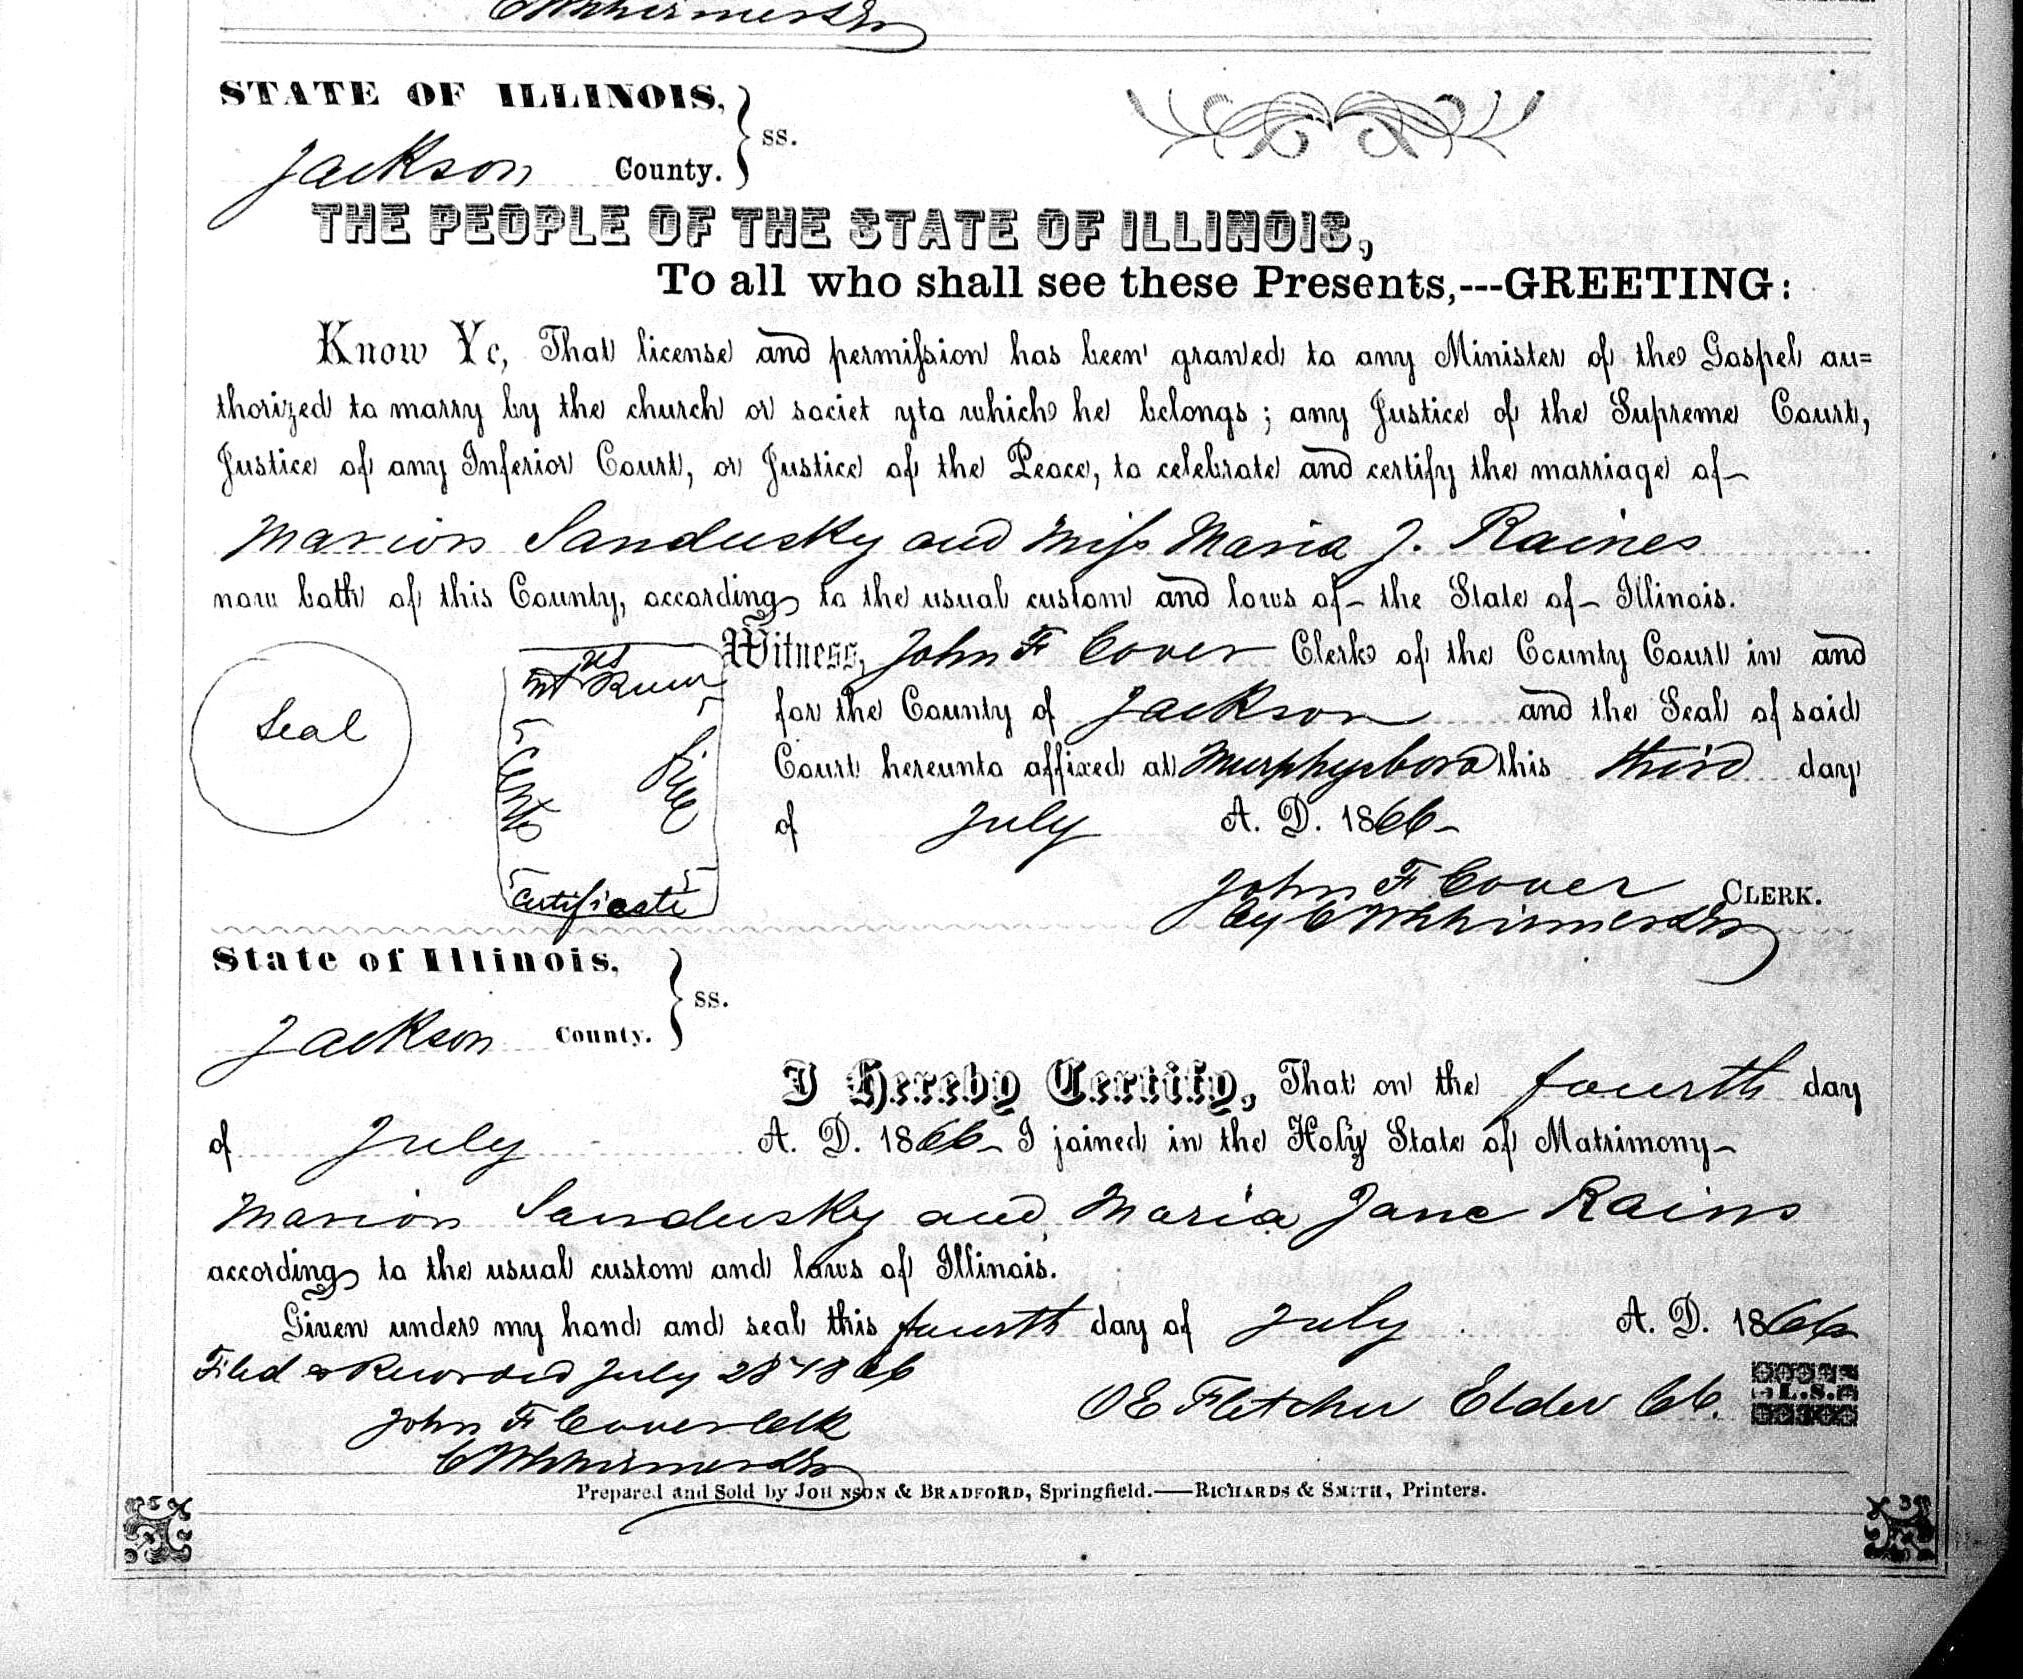 STATE OF ILLINOIS,
Jackson County. } ss.
THE PEOPLE OF THE STATE OF ILLINOIS,
To all who shall see these Presents,---GREETING:
Know Ye, That license and permission has been granted to any Minister of the Gospel au=
thorized to marry by the church or societ yto which he belongs; any Justice of the Supreme Court,
Justice of any Inferior Court, or Justice of the Peace, to celebrate and certify the marriage of
Marion Sandusky and Miss Maria J. Raines
now both of this County, according to the usual custom and laws of the State of Illinois.
Witness, John F Cover Clerk of the County Court in and
for the County of Jackson and the Seal of said
Court hereunto affixed at Murphysboro this third day
of July A. D. 1866
Seal
5 Cents
Five
Certificate
John F Cover CLERK.
by
State of Illinois,
Jackson County. } ss.
I Hereby Certify, That on the fourth day
of July A. D. 1866 I joined in the Holy State of Matrimony
Marion Sandusky and Maria Jane Rains
according to the usual custom and laws of Illinois.
Given under my hand and seal this fourth day of July A. D. 1866
Filed & Recorded July 28 1866
O E Fletcher Elder L.S.
John F Cover Clk
Prepared and Sold by JOHNSON & BRADFORD, Springfield.——RICHARDS & SMITH, Printers.